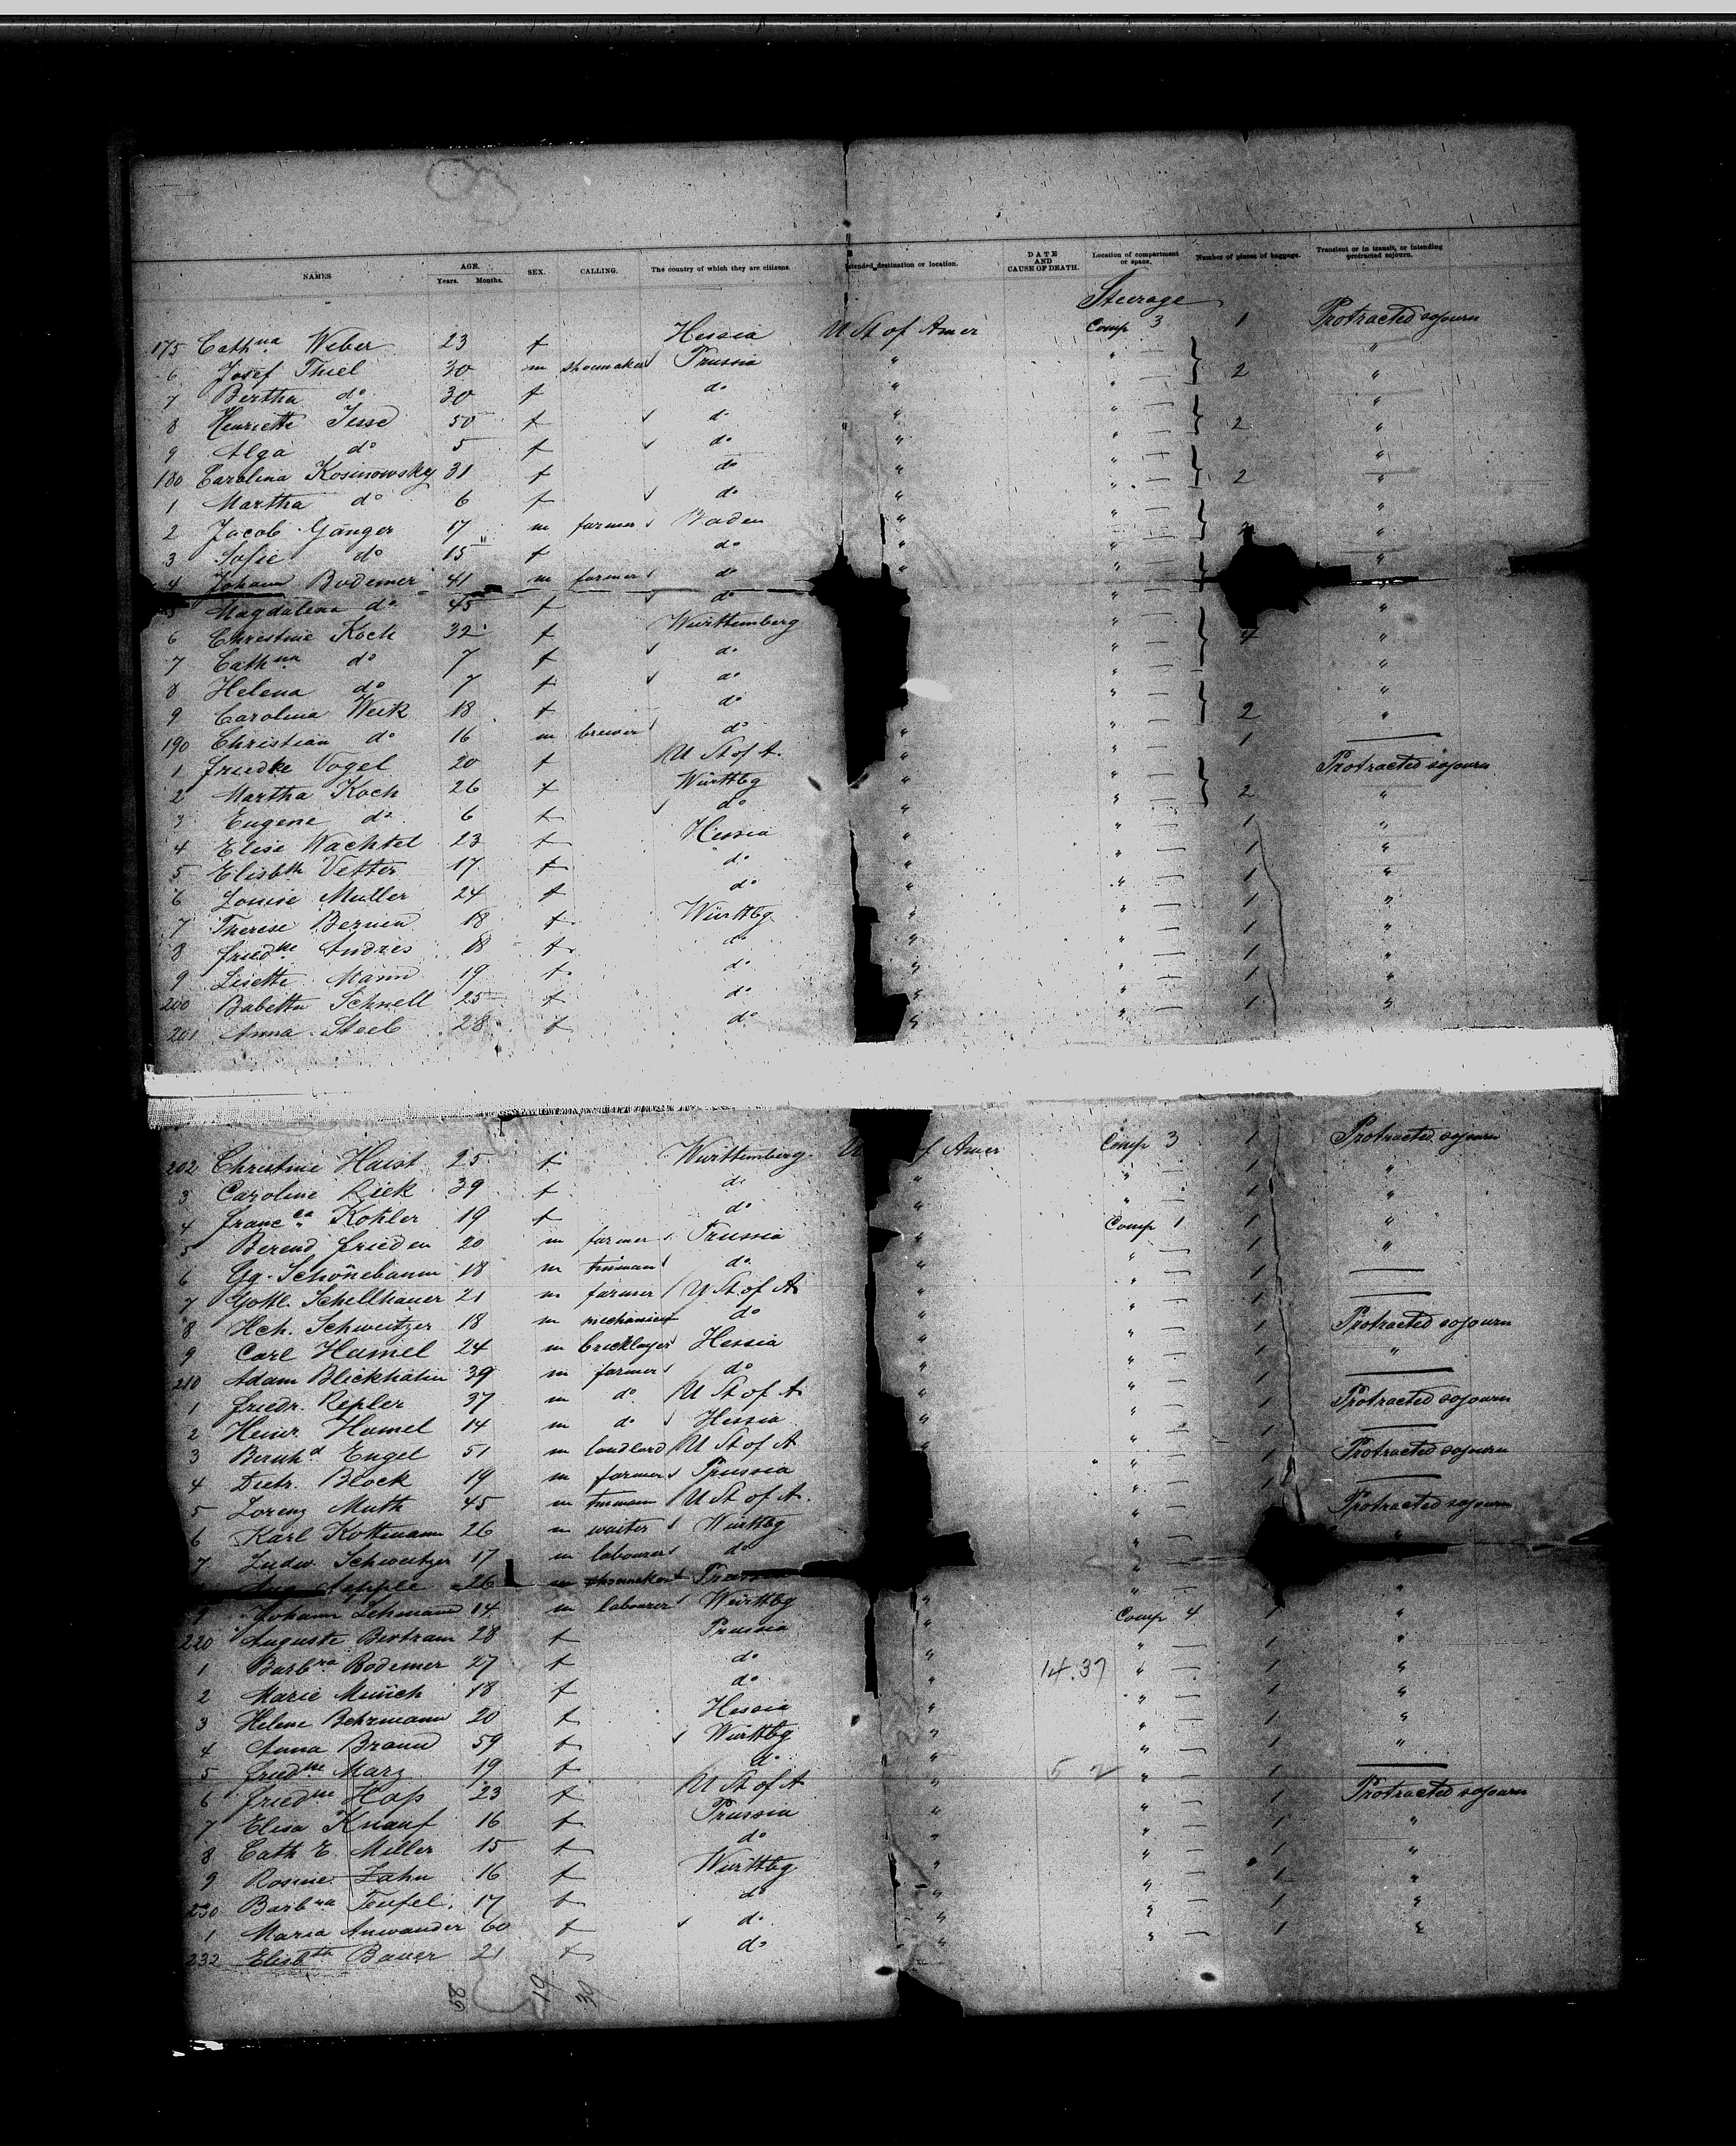 NAMES AGE. Years. Months. SEX. CALLING. The country of which they are citizens. Intended destination or location. DATE AND CAUSE OF DEATH. Location of compartment or space. Number of pieces of baggage. Transient or in transit, or intending protracted sojourn.
Steerage
175 Cathna Weber 23 f Hessia U St of Amer Comp 3 1 Protracted sojourn
6 Josef Thiel 30 m shoemaker Prussia " " "
7 Bertha do 30 f do " " 2 "
8 Henriette Jesse 50 f do " " "
9 Alga do 5 f do " " 2 "
180 Carolina Kosinowsky 31 f do " " "
1 Martha do 6 f do " " 2 "
2 Jacob Gänger 17 m farmer Baden " " "
3 Sofie do 15 f do " " "
4 Johann Bodemer 41 m farmer do " " "
5 Magdalena do 45 f do "
6 Christine Koch 32 f Württemberg " "
7 Cathna do 7 f do " 4 "
8 Helena do 7 f do " "
9 Carolina Weik 18 f do " "
190 Christian do 16 m brewer do " " 2 "
1 Friedke Vogel 20 f U St of A. " " 1 —
2 Martha Koch 26 f Württbg " " Protracted sojourn
3 Eugene do 6 f do " " 2 "
4 Elise Wachtel 23 f Hessia " " 1 "
5 Elisbth Vetter 17 f do " " 1 "
6 Louise Muller 24 f do " " 1 "
7 Therese 18 f Württbg " " 1 "
8 Friedke Andres 18 f do " " 1 "
9 Lisette Mann 19 f do " " 1 "
200 Babetta Schnell 25 f do " " 1 "
201 Anna Steeb 28 f do " " 1 "
202 Christine Haist 25 f Württemberg U f Amer Comp 3 1 Protracted sojourn
3 Caroline Rick 39 f do " " 1 "
4 Francca Kohler 19 f do " " 1 "
5 Berend Frieden 20 m farmer Prussia " Comp 1 1 "
6 Gg. Schönebaum 18 m tinman do " " 1 "
7 Gottl. Schellhauer 21 m farmer U St of A " " 1 —
8 Hch. Schweitzer 18 m mechanic do " " 1 —
9 Carl Hamel 24 m bricklayer Hessia " " 1 Protracted sojourn
210 Adam Blickhahn 39 m farmer do " " 1 "
1 Friedr. Repler 37 m do U St of A " " 1 —
2 Heinr Hamel 14 m do Hessia " " 1 Protracted sojourn
3 Bernhd Engel 51 m landlord U St of A " " 1 —
4 Dietr. Block 19 m farmer Prussia " " 1 Protracted sojourn
5 Lorenz Muth 45 m tinman U St of A. " 1 —
6 Karl Kottmann 26 m waiter Württbg " Protracted sojourn
7 Ludw. Schweitzer 17 m labourer do " "
Aug Aepple 26 m shoemaker Prussia "
9 Johann Lehmann 14 m labourer Württbg " " "
220 Auguste Bertram 28 f Prussia " Comp 4 1 "
1 Barbra Bodemer 27 f do " " 1 "
2 Marie Münch 18 f do " 14.37 " 1 "
3 Helene Behrmann 20 f Hessia " " 1 "
4 Anna Braun 59 f Württbg " " 1 "
5 Friedke Marz 19 f do " " 1 "
6 Friedke Hass 23 f U St of A " 5 2 " 1 —
7 Elisa Knauf 16 f Prussia " " 1 Protracted sojourn
8 Cath E. Miller 15 f do " " 1 "
9 Rosine Zahn 16 f Württbg " " 1 "
230 Barbra Teufel 17 f do " " 1 "
1 Maria Anwander 60 f do " " 1 "
232 Elisbth Bauer 21 f do " " 1 "
58 19 39